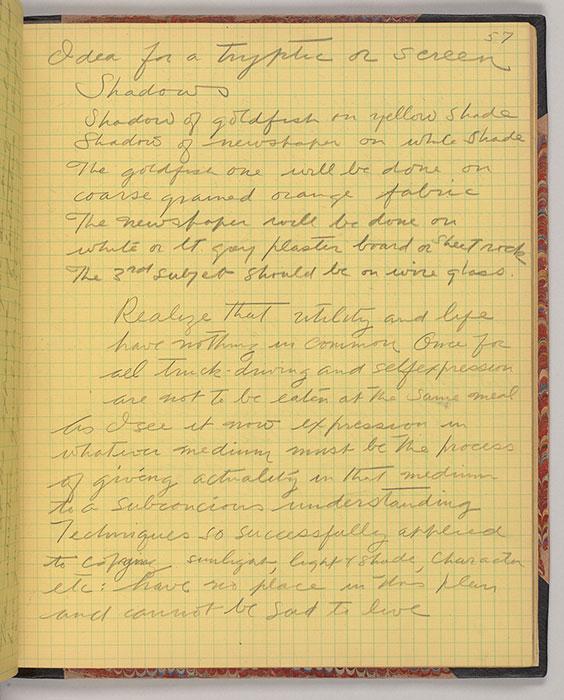 57
Idea for a tryptic or screen
Shadows
Shadow of goldfish on yellow shade
Shadow of newspaper on white shade
The goldfish one will be done on
coarse grained orange fabric
The newspaper will be done on
white or lt. gray plaster board or sheet rock
The 3rd subjet should be on wire glass.
Realize that utility and life
have nothing in common Once for
all truck-driving and self expression
are not to be eaten at the same meal
As I see it now expression in
whatever medium must be the process
of giving actuality in that medium
to a subconcious understanding
Techniques so successfully applied
to copying sunlight, light & shade, character
etc: have no place in this plan
and cannot be said to live